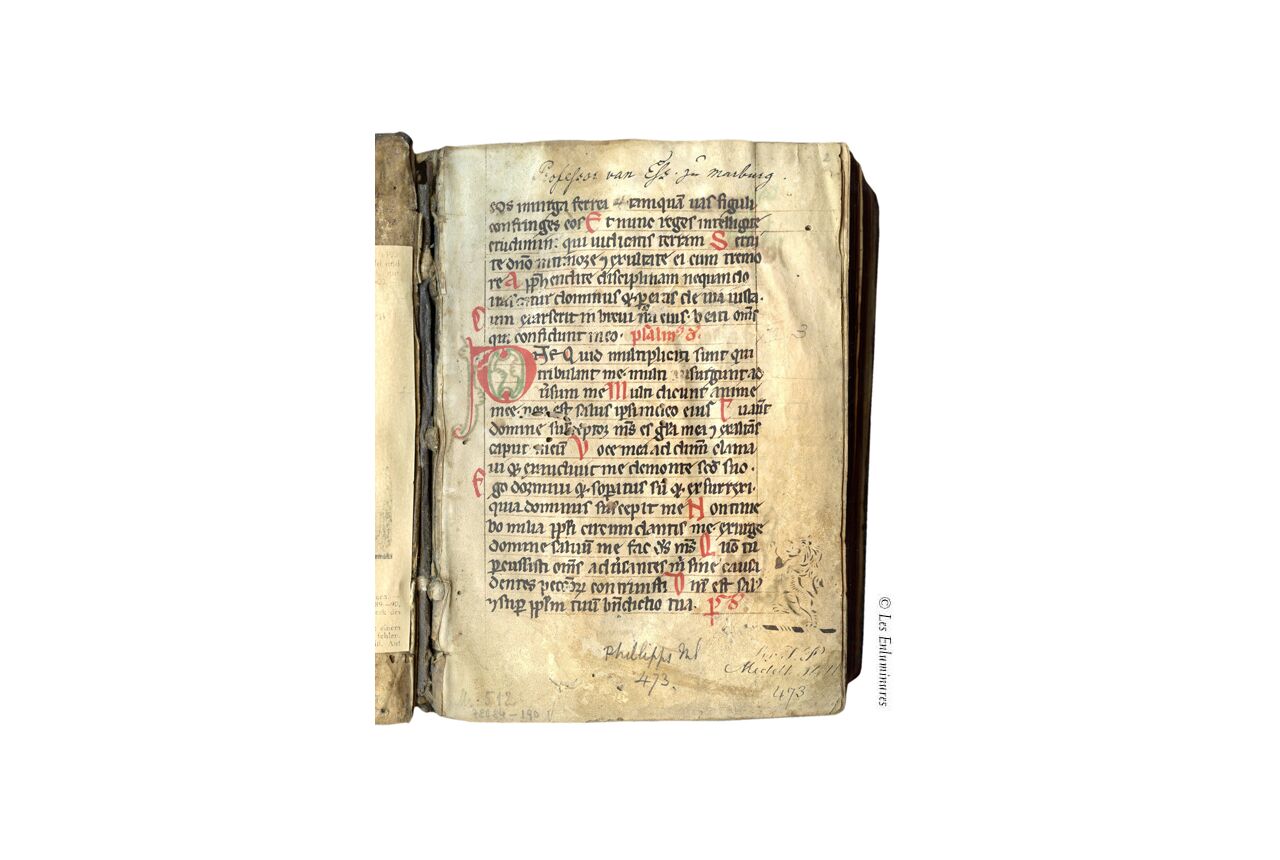 Professor van Eß. zu Marburg.
2
eos in uirga ferrea & tamquā uas figuli
confringes eos E t nunc reges intelligite
erudimini qui iudicatis terram S erui
te dn̄o in timore ⁊ exultate ei cum tremo
re A pp̄hendite disciplinam nequando
irascatur dominus &
um exarserit in breui ira eius. beati om̄s
qui confidunt in eo. psalm
D n̄e Quid multiplicati sunt qui
tribulant me. multi insurgunt ad
uersum me M ulti dicunt anime
mee. non est salus ipsi in deo eius T u aut̄
domine susceptor m̄s es gl̄a mea ⁊ exaltans
caput meum V oce mea ad dn̄m clama
ui & exaudiuit me de monte sc̄o suo.
E go dormiui & soporatus sū & exsurrexi.
quia dominus suscepit me N on time
bo milia pp̄li circumdantis me. exurge
domine saluum me fac ds̄ m̄s Q uō tu
percussisti om̄s aduersantes m̄ sine causa
dentes peccatorum contriuisti D n̄i est sal
⁊ super pp̄lm tuum bn̄dictio tua.
3
Phillipps MS
473.
Middle Hill
473
512
© Les Enluminures